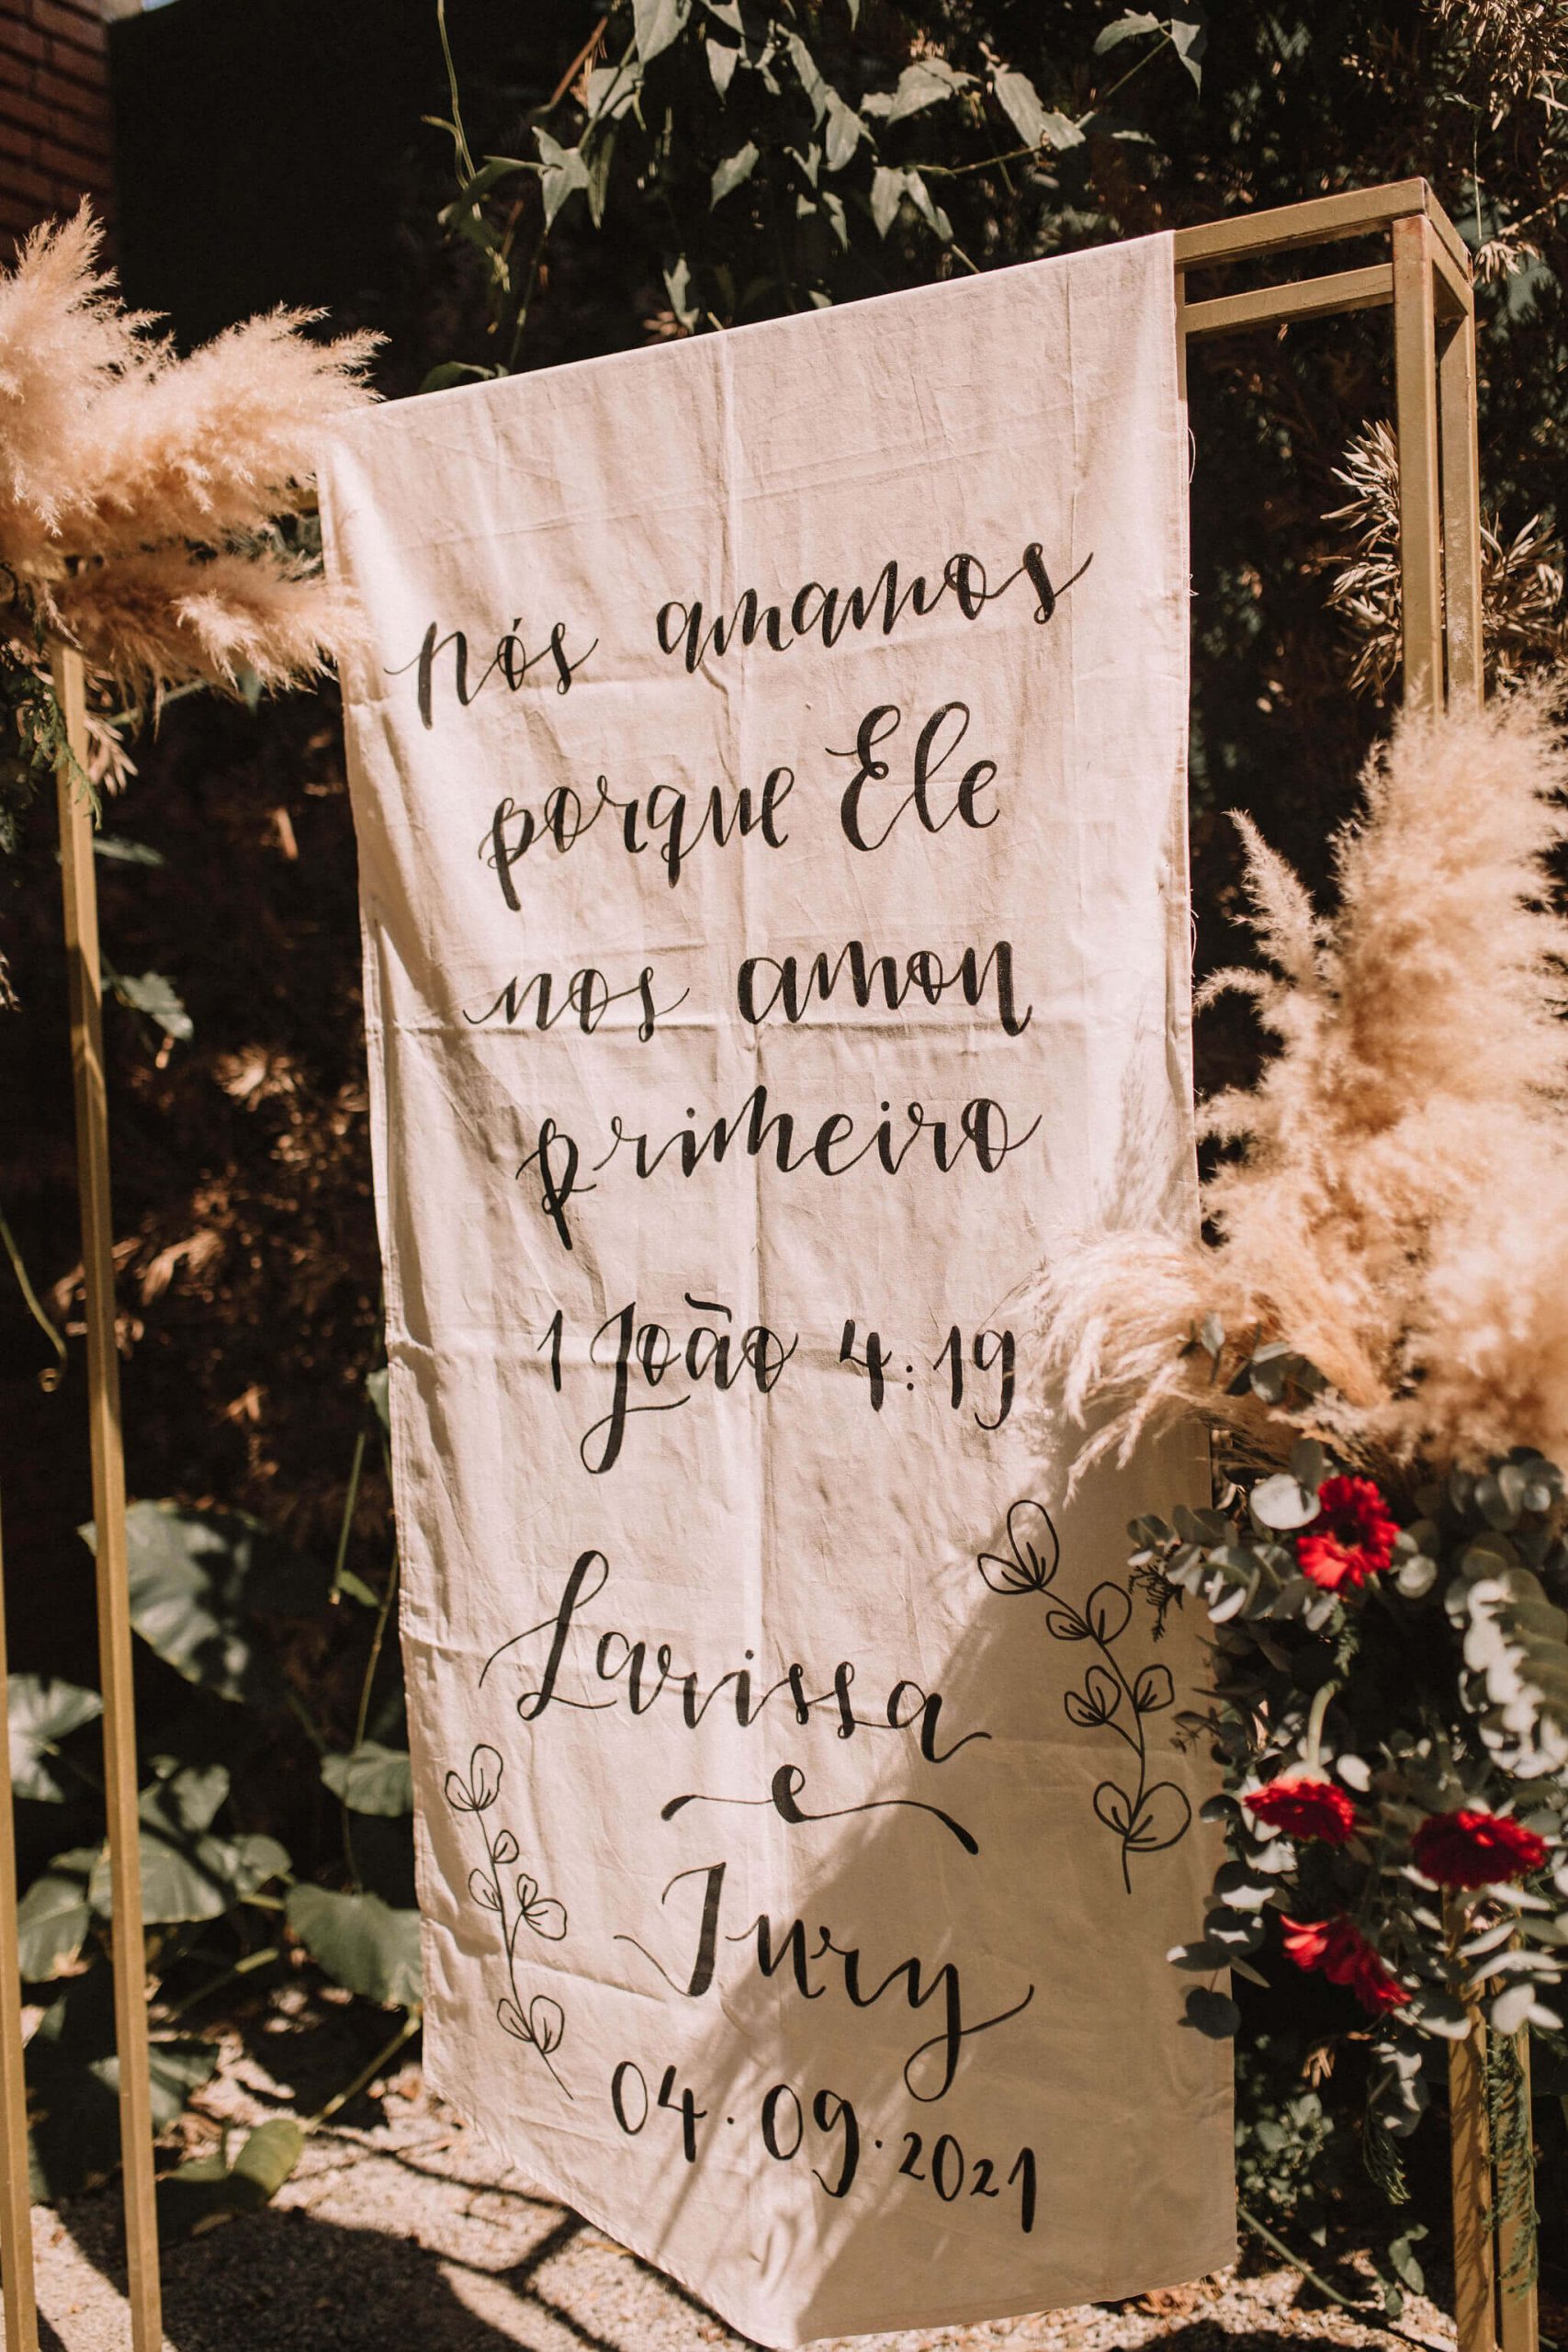 nós amamos
porque Ele
nos amou
primeiro
1 João 4:19
Larissa
e
Iury
04.09.2021